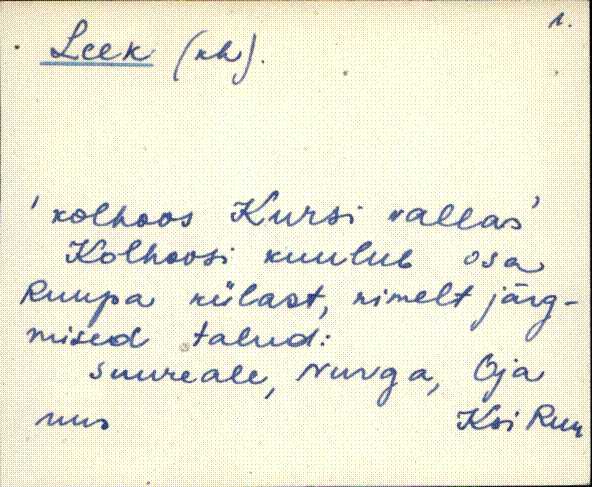 1.
Leek (kh).
'kolhoos Kursi vallas'
Kolhoosi kuulub osa
Ruupa külast, nimelt järg-
mised talud:
Suureale, Nurga, Oja
nus Ksi Ruu